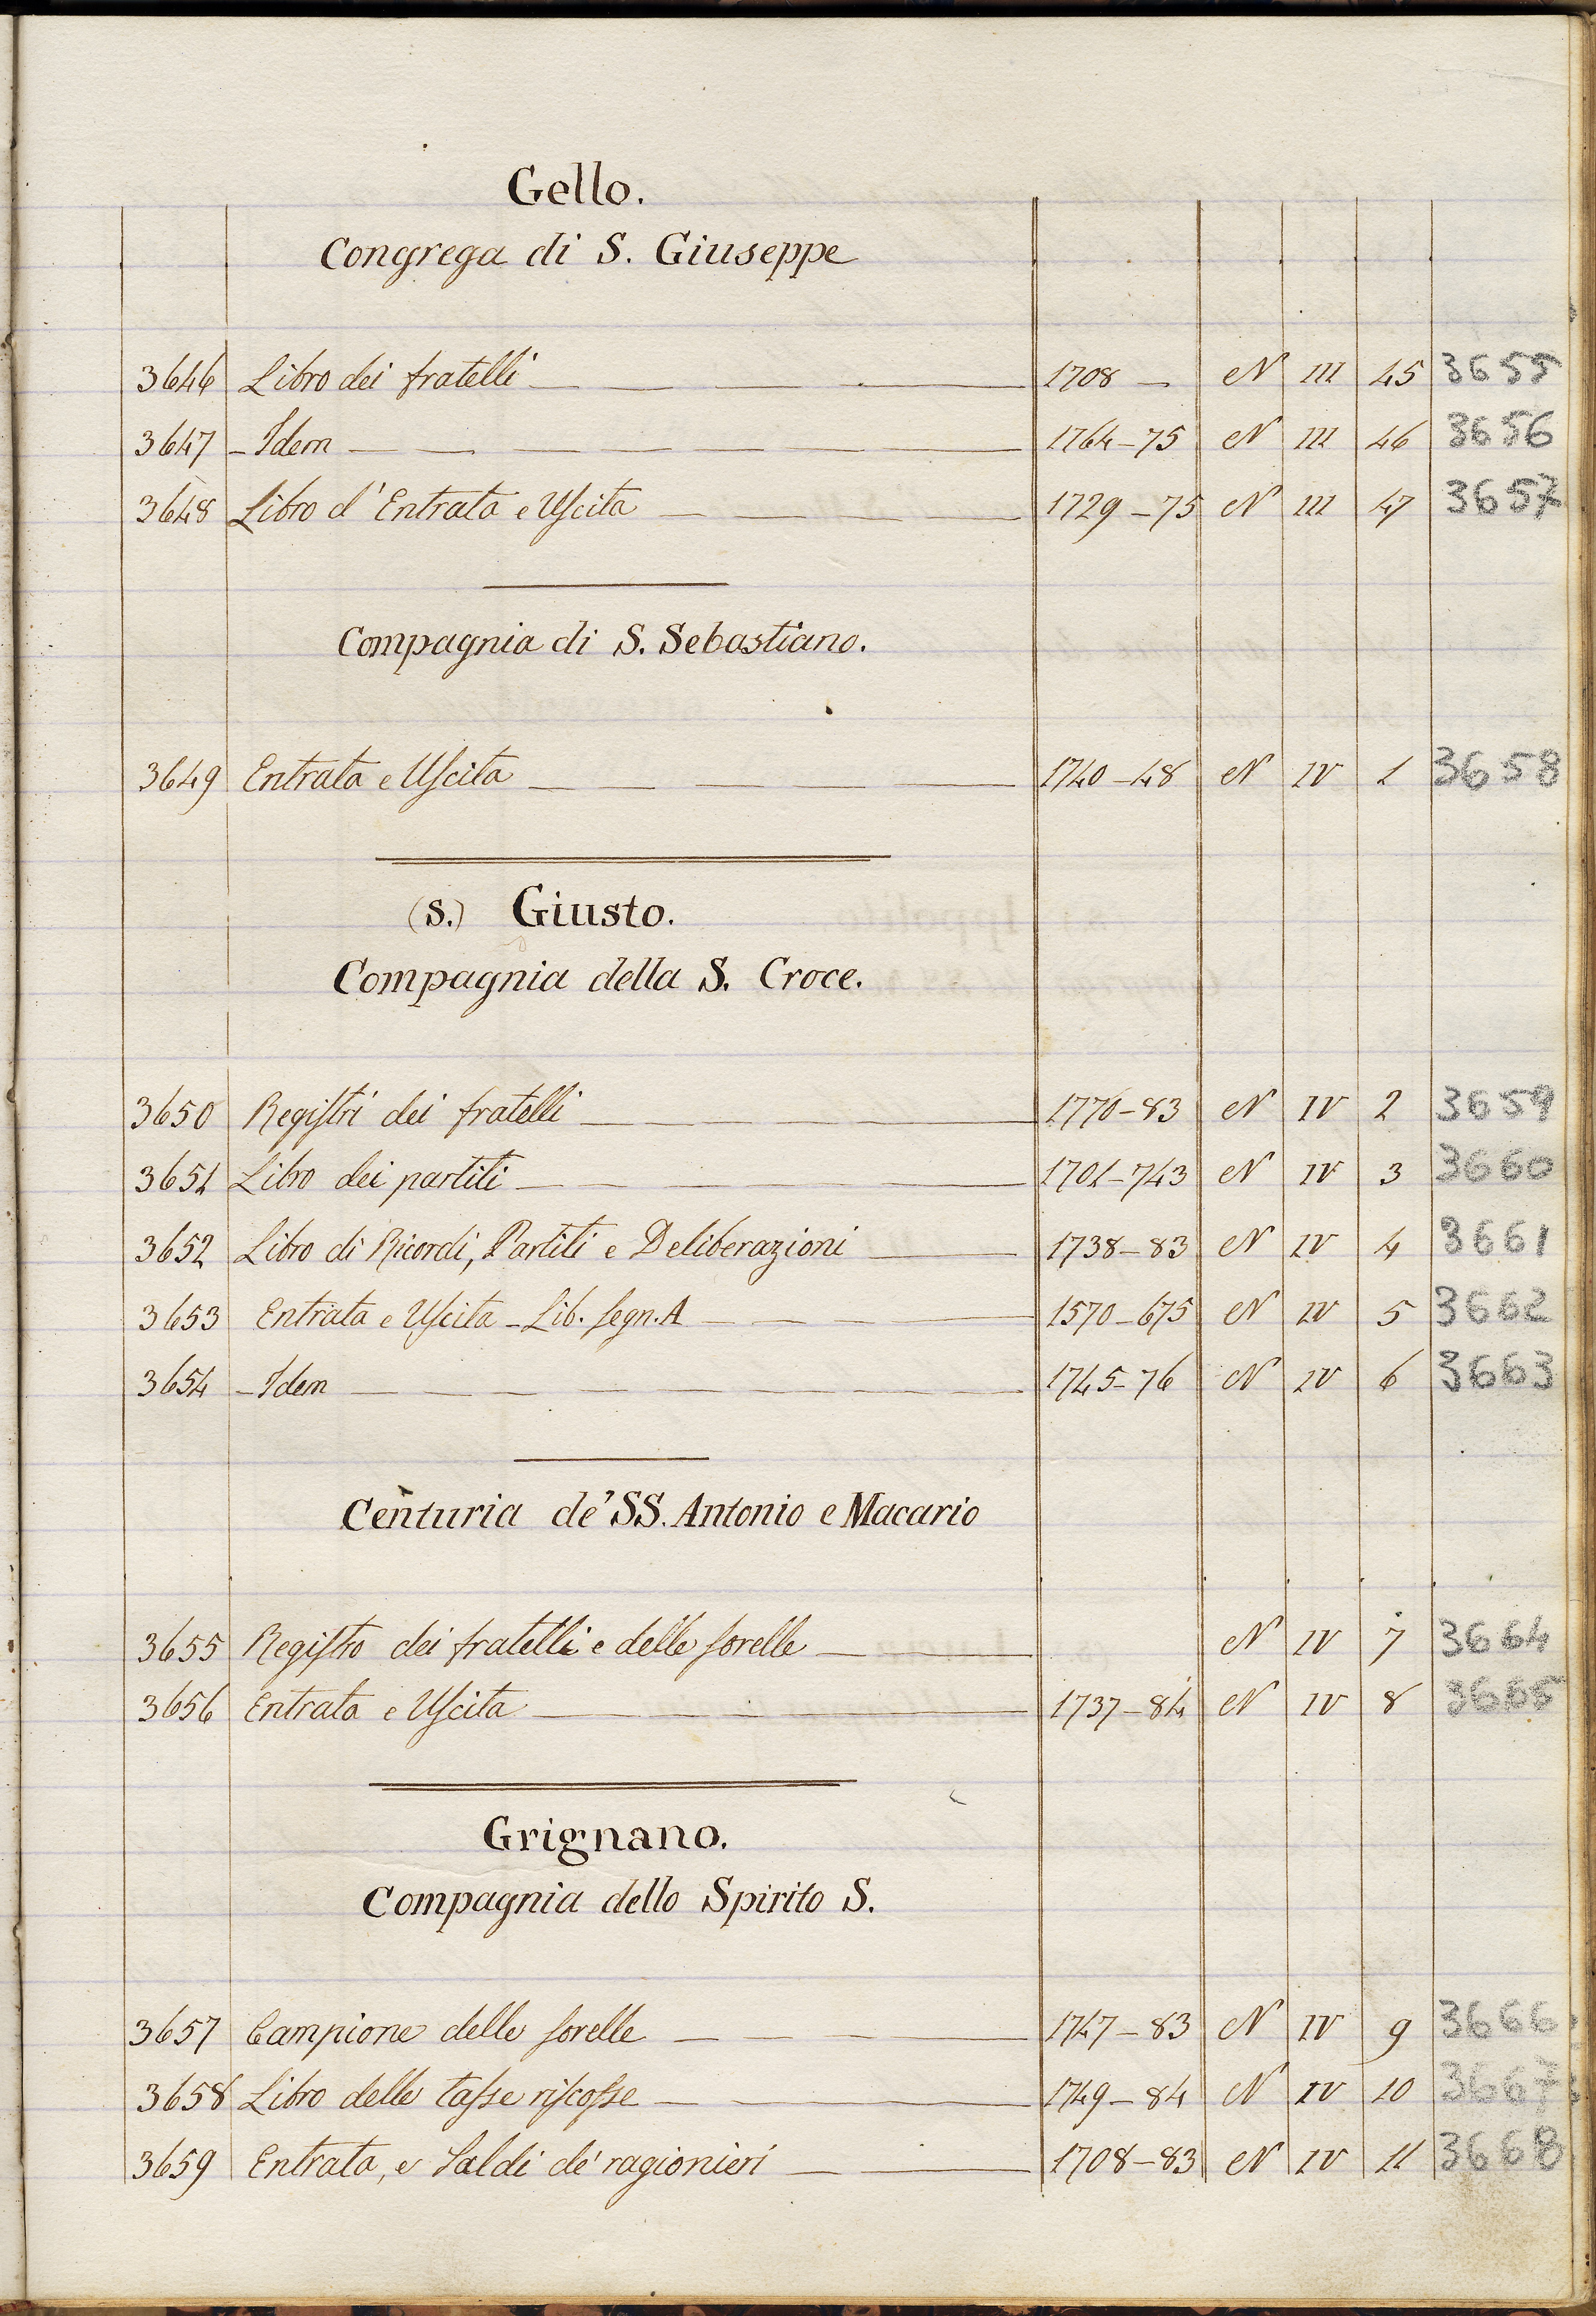 Gello.
Congrega di S. Giuseppe
3646 Libro dei fratelli 1708 — N III 45 3655
3647 – Idem 1764–75 N III 46 3656
3648 Libro d'Entrata e Uscita 1729–75 N III 47 3657
Compagnia di S. Sebastiano.
3649 Entrata e Uscita 1740–48 N IV 1 3658
(S.) Giusto.
Compagnia della S. Croce.
3650 Registri dei fratelli 1770–83 N IV 2 3659
3651 Libro dei partiti 1701–743 N IV 3 3660
3652 Libro di Ricordi, Partiti e Deliberazioni 1738–83 N IV 4 3661
3653 Entrata e Uscita – Lib. segn. A 1570–675 N IV 5 3662
3654 – Idem 1745–76 N IV 6 3663
Centuria de' SS. Antonio e Macario
3655 Registro dei fratelli e delle sorelle N IV 7 3664
3656 Entrata e Uscita 1737–84 N IV 8 3665
Grignano.
Compagnia dello Spirito S.
3657 Campione delle sorelle 1747–83 N IV 9 3666
3658 Libro delle tasse riscosse 1749–84 N IV 10 3667
3659 Entrata, e Saldi de' ragionieri 1708–83 N IV 11 3668